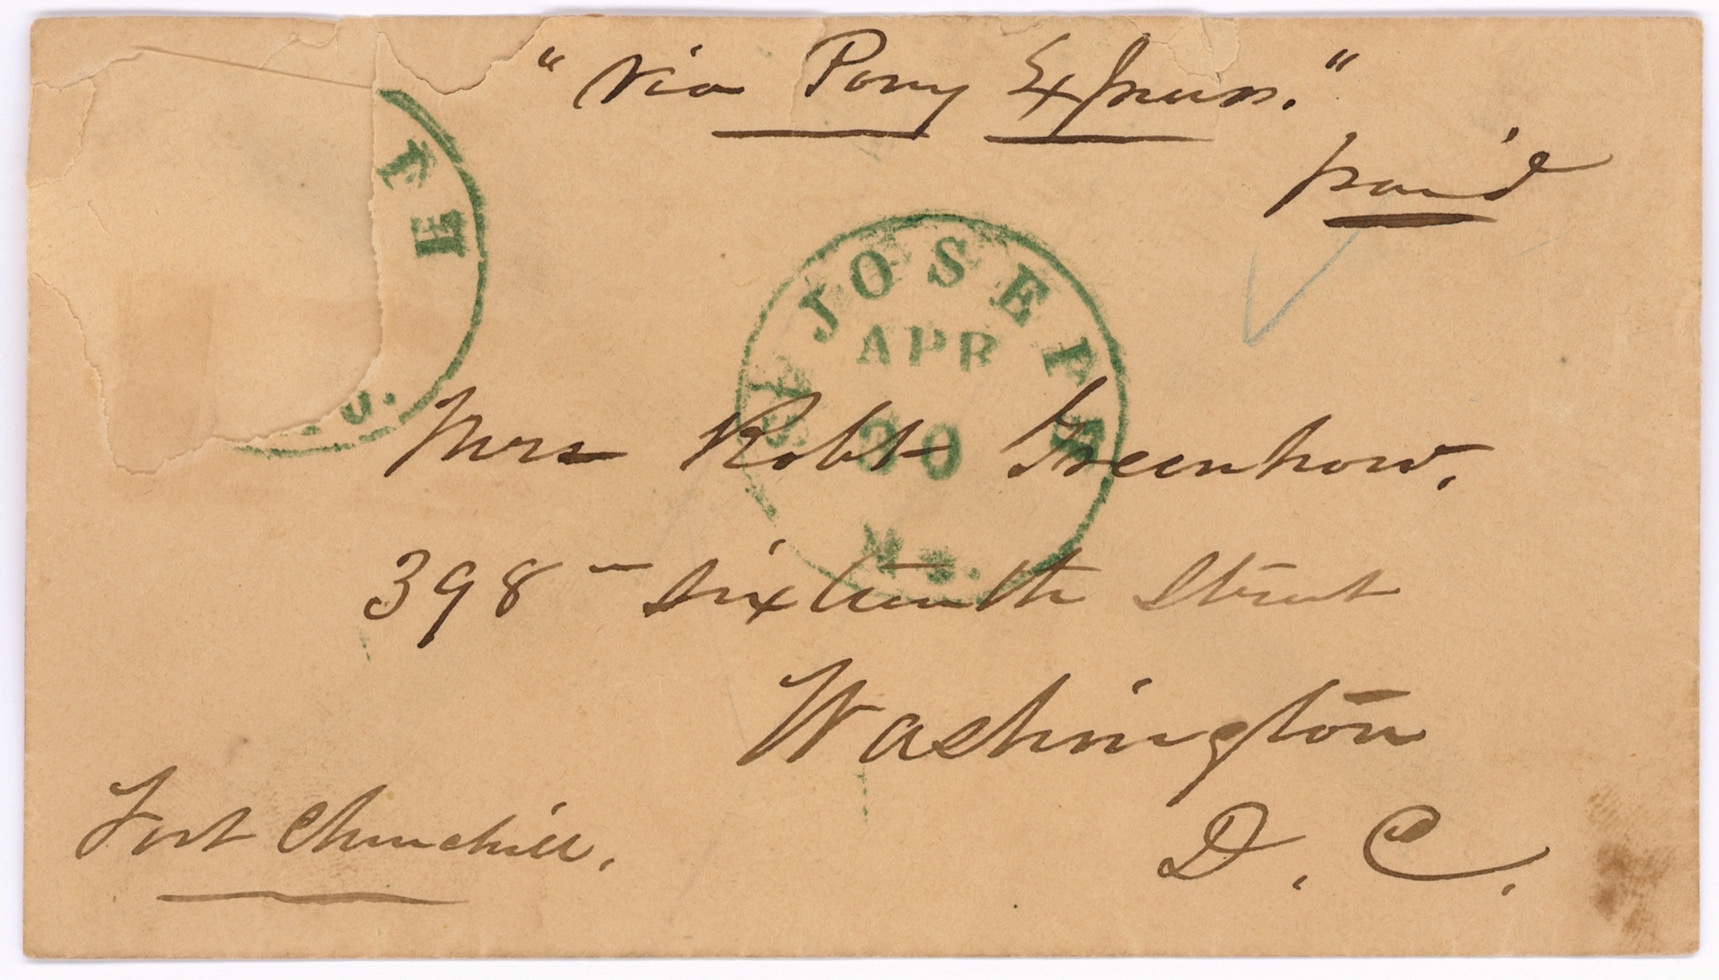 "Via Pony Express."
paid
E
O.
ST JOSEPH
APR
30
Mo.
Mrs Robt Greenhow,
398 - Sixteenth Street
Washington
D. C.
Fort Churchill.